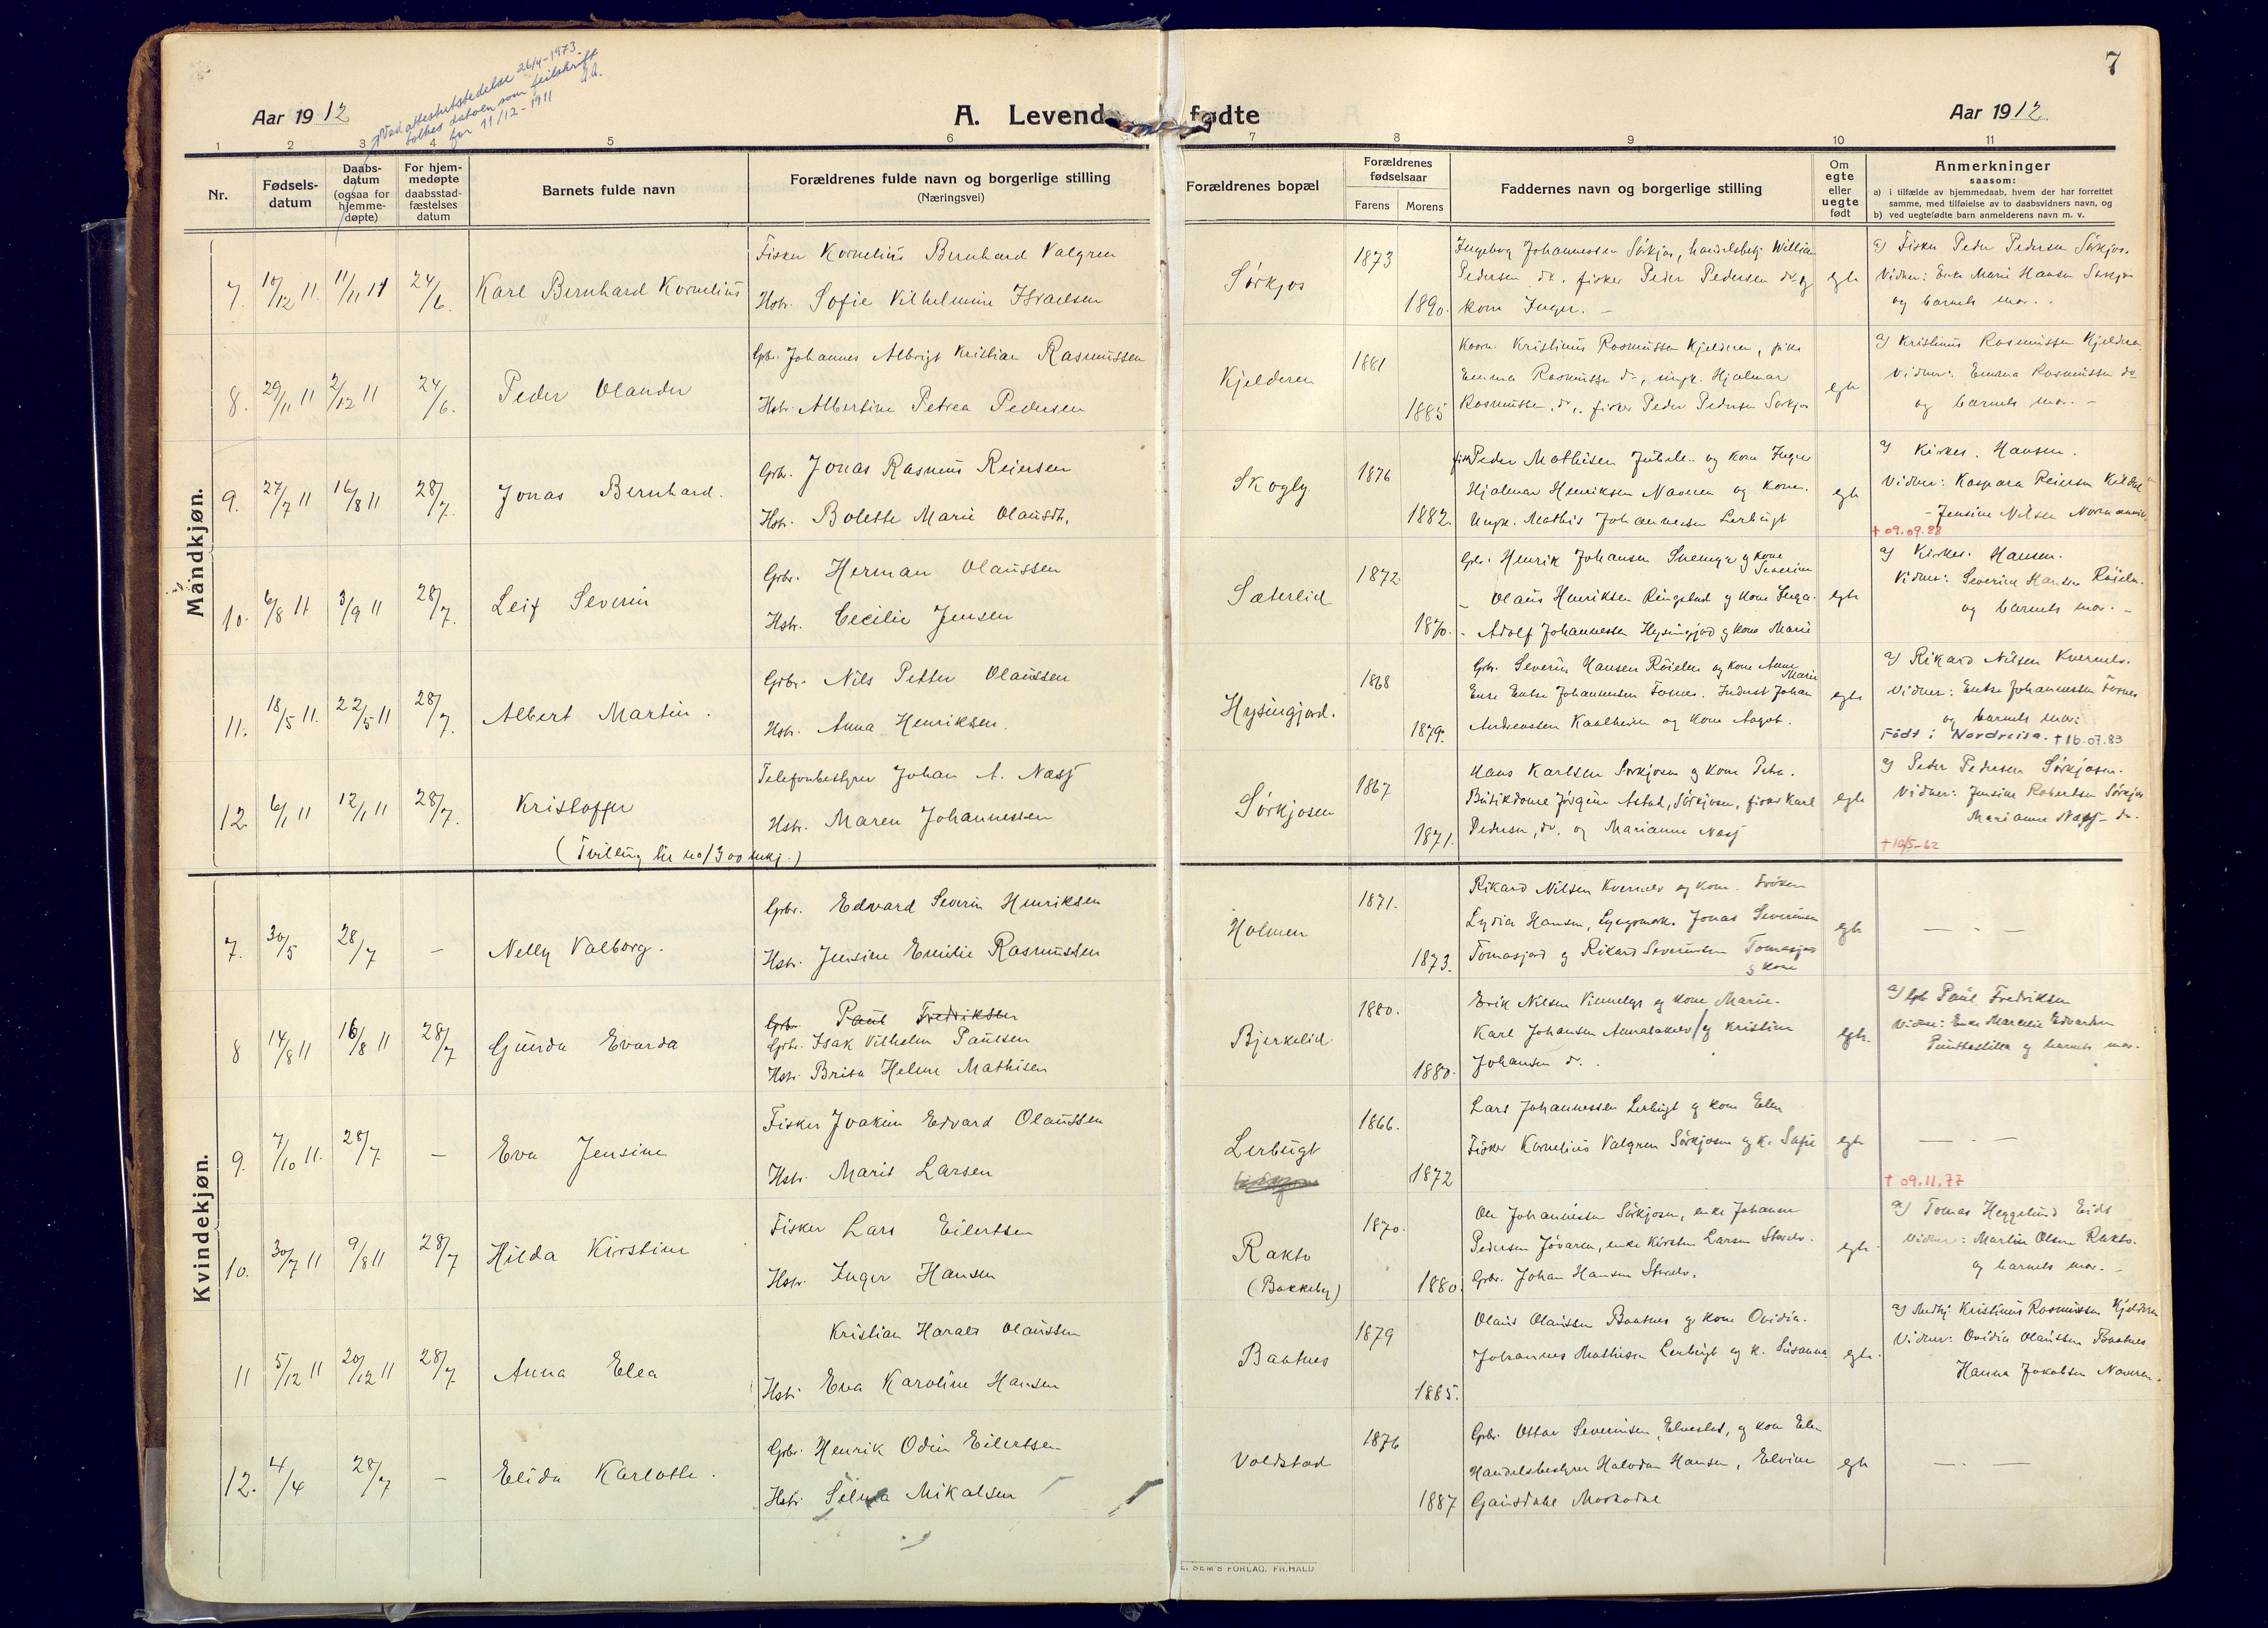 7
Ved attestutstedelse 26/4-1973
tolkes datoen som feilskrift
for 11/12-1911
Aar 1912
A. Levende fødte
Aar 1912
1 2 3 4 5 6 7 8 9 10 11
Nr.
Fødsels-datum
Daabs-datum (ogsaa for hjemme-døpte)
For hjem-medøpte daabsstad-fæstelses datum
Barnets fulde navn
Forældrenes fulde navn og borgerlige stilling
(Næringsvei)
Forældrenes bopæl
Forældrenes fødselsaar
Farens Morens
Faddernes navn og borgerlige stilling
Om egte eller uegte født
Anmerkninger
saasom:
a) i tilfælde av hjemmedaab, hvem der har forrettet
samme, med tilføielse av to daabsvidners navn, og
b) ved uegtefødte barn anmelderens navn m. v.
Mandkjøn.
7. 10/12 11. 11/11 11 24/6. Karl Bernhard Kornelius
Fisker Kornelius Bernhard Valgren
Hstr. Sofie Vilhelmine Israelsen
Sørkjos 1873 1890.
Ingeborg Johannessen Sørkjos, handelsbetj. William
Pedersen do, fisker Peder Pedersen do og
kone Inger. –
egte
a) Fisker Peder Pedersen Sørkjos.
Vidner: Enke Marie Hansen Sørkjos
og barnets mor.
8. 29/11 11 2/12 11 24/6. Peder Olander
Gbr. Johannes Albrigt Kristian Rasmussen
Hstr. Albertine Petrea Pedersen
Kjelderen 1881 1885
Kristinus Rasmussen Kjelderen, pike
Emma Rasmussen do, ungk. Hjalmar
Rasmussen, do, fisker Peder Pedersen Sørkjos
egte
a) Kristinus Rasmussen Kjelderen.
Vidner: Emma Rasmussen do
og barnets mor. –
9. 27/7 11 16/8 11 28/7. Jonas Bernhard.
Gbr. Jonas Rasmus Reiersen
Hstr. Bolette Marie Olausdtr.
Skogly 1876 1882.
Peder Mathisen og kone Inger
Hjalmar Henriksen Naveren og kone.
Ungk. Mathis Johannesen Lerbugt
egte
a) Kirkes. Hansen.
Vidner: Kaspara Reiersen
– Jensine Nilsen
† 09.09.88
10. 6/8 11 3/9 11 28/7. Leif Severin
Gbr. Herman Olaussen
Hstr. Cecilie Jensen
Sæterlid 1872. 1870.
Gbr. Henrik Johansen Snemyr og kone Severine
– Olaus Henriksen Ringstad og kone Inga.
– Adolf Johannessen Hysingjord og kone Marie
egte
a) Kirkes. Hansen.
Vidner: Severin Hansen Røielen.
og barnets mor. –
11. 18/5 11. 22/5 11 28/7. Albert Martin.
Gbr. Nils Petter Olaussen
Hstr. Anna Henriksen.
Hysingjord. 1868 1879.
Gbr. Severin Hansen Røielen og kone Anne Marie
Enke Johannesen Fosnes. Indust Johan
Andreassen Kaalheim og kone Aagot.
egte
a) Rikard Nilsen Kvernelv.
Vidner: Johannesen Fosnes
og barnets mor.
Født i Nordreisa. † 16.07.83
12. 6/1 11 12/1 11 28/7. Kristoffer
(Tvilling til no/300 )
Telefonbestyrer Johan A. Næsj
Hstr. Maren Johannessen
Sørkjosen 1867 1871.
Hans Karlsen Sørkjosen og kone Petra.
Butikdame Jørgine Astad, Sørkjosen, fisker Karl
Pedersen, do. og Marianne Næsj
egte
a) Peder Pedersen Sørkjosen.
Vidner: Jensine Robertsen Sørkjos
Marianne Næsj – do.
† 10/5-62
Kvindekjøn.
7. 30/5 28/7 – Nelly Valborg.
Gbr. Edvard Severin Henriksen
Hstr. Jensine Emilie Rasmussen
Holmen 1871. 1873.
Rikard Nilsen Kvernelv og kone. Frøken
Lydia Hansen, Jonas Severinsen
Tomasjord og Rikard Severinsen Tomasjord
og kone
egte — . —
8 14/8 11 16/8 11 28/7 Gunda Evarda
Gbr. Paul Fredriksen
Gbr. Isak Vilhelm Paulsen
Hstr. Brita Helene Mathisen
Bjerkelid 1880. 1880.
Erik Nilsen Vinnelys og kone Marie.
Karl Johansen og Kristine
Johansen d.
egte
a) Gbr. Paul Fredriksen
Vidner: Enke Edvardsen
og barnets mor.
9. 7/10 11. 28/7 – Eva Jensine
Fisker Joakim Edvard Olaussen
Hstr. Marit Larsen
Lerbugt 1866. 1872
Lars Johannessen Lerbugt og kone Elen
Fisker Kornelius Valgren Sørkjosen og k. Sofie
egte — . —
† 09.11.77
10. 30/7 11 9/8 11 28/7 Hilda Kirstine
Fisker Lars Eilertsen
Hstr. Inger Hansen
Rakto
(Bakkeby)
1870. 1880.
Ole Johannesen Sørkjosen, enke Johanne
Pedersen Jøvaren, enke Kirsten Larsen Storelv.
Gbr. Johan Hansen Storelv.
egte
a) Tomas Heggelund Eide
Vidner: Martin Olsen Rakto.
og barnets mor. –
11 5/12 11 20/12 11 28/7 Anna Elea
Kristian Harald Olaussen
Hstr. Eva Karoline Hansen
Baatnes 1879 1885.
Olaus Olaussen Baatnes og kone Ovidia.
Johannes Mathisen Lerbugt og k. Susanna
egte
a) Kristinus Rasmussen Kjelderen
Vidner: Ovidia Olaussen Baatnes
Hanna Jakobsen Naveren.
12. 4/4 28/7 – Elida Karlotte.
Gbr. Henrik Odin Eilertsen
Hstr. Selma Mikalsen
Voldstad 1876 1887
Gbr. Ottar Severinsen, Elvested, og kone Elen
Handelsbestyrer Halvdan Hansen, Elvine
Gausdahl
egte — . —
SEM'S FORLAG. FR. HALD